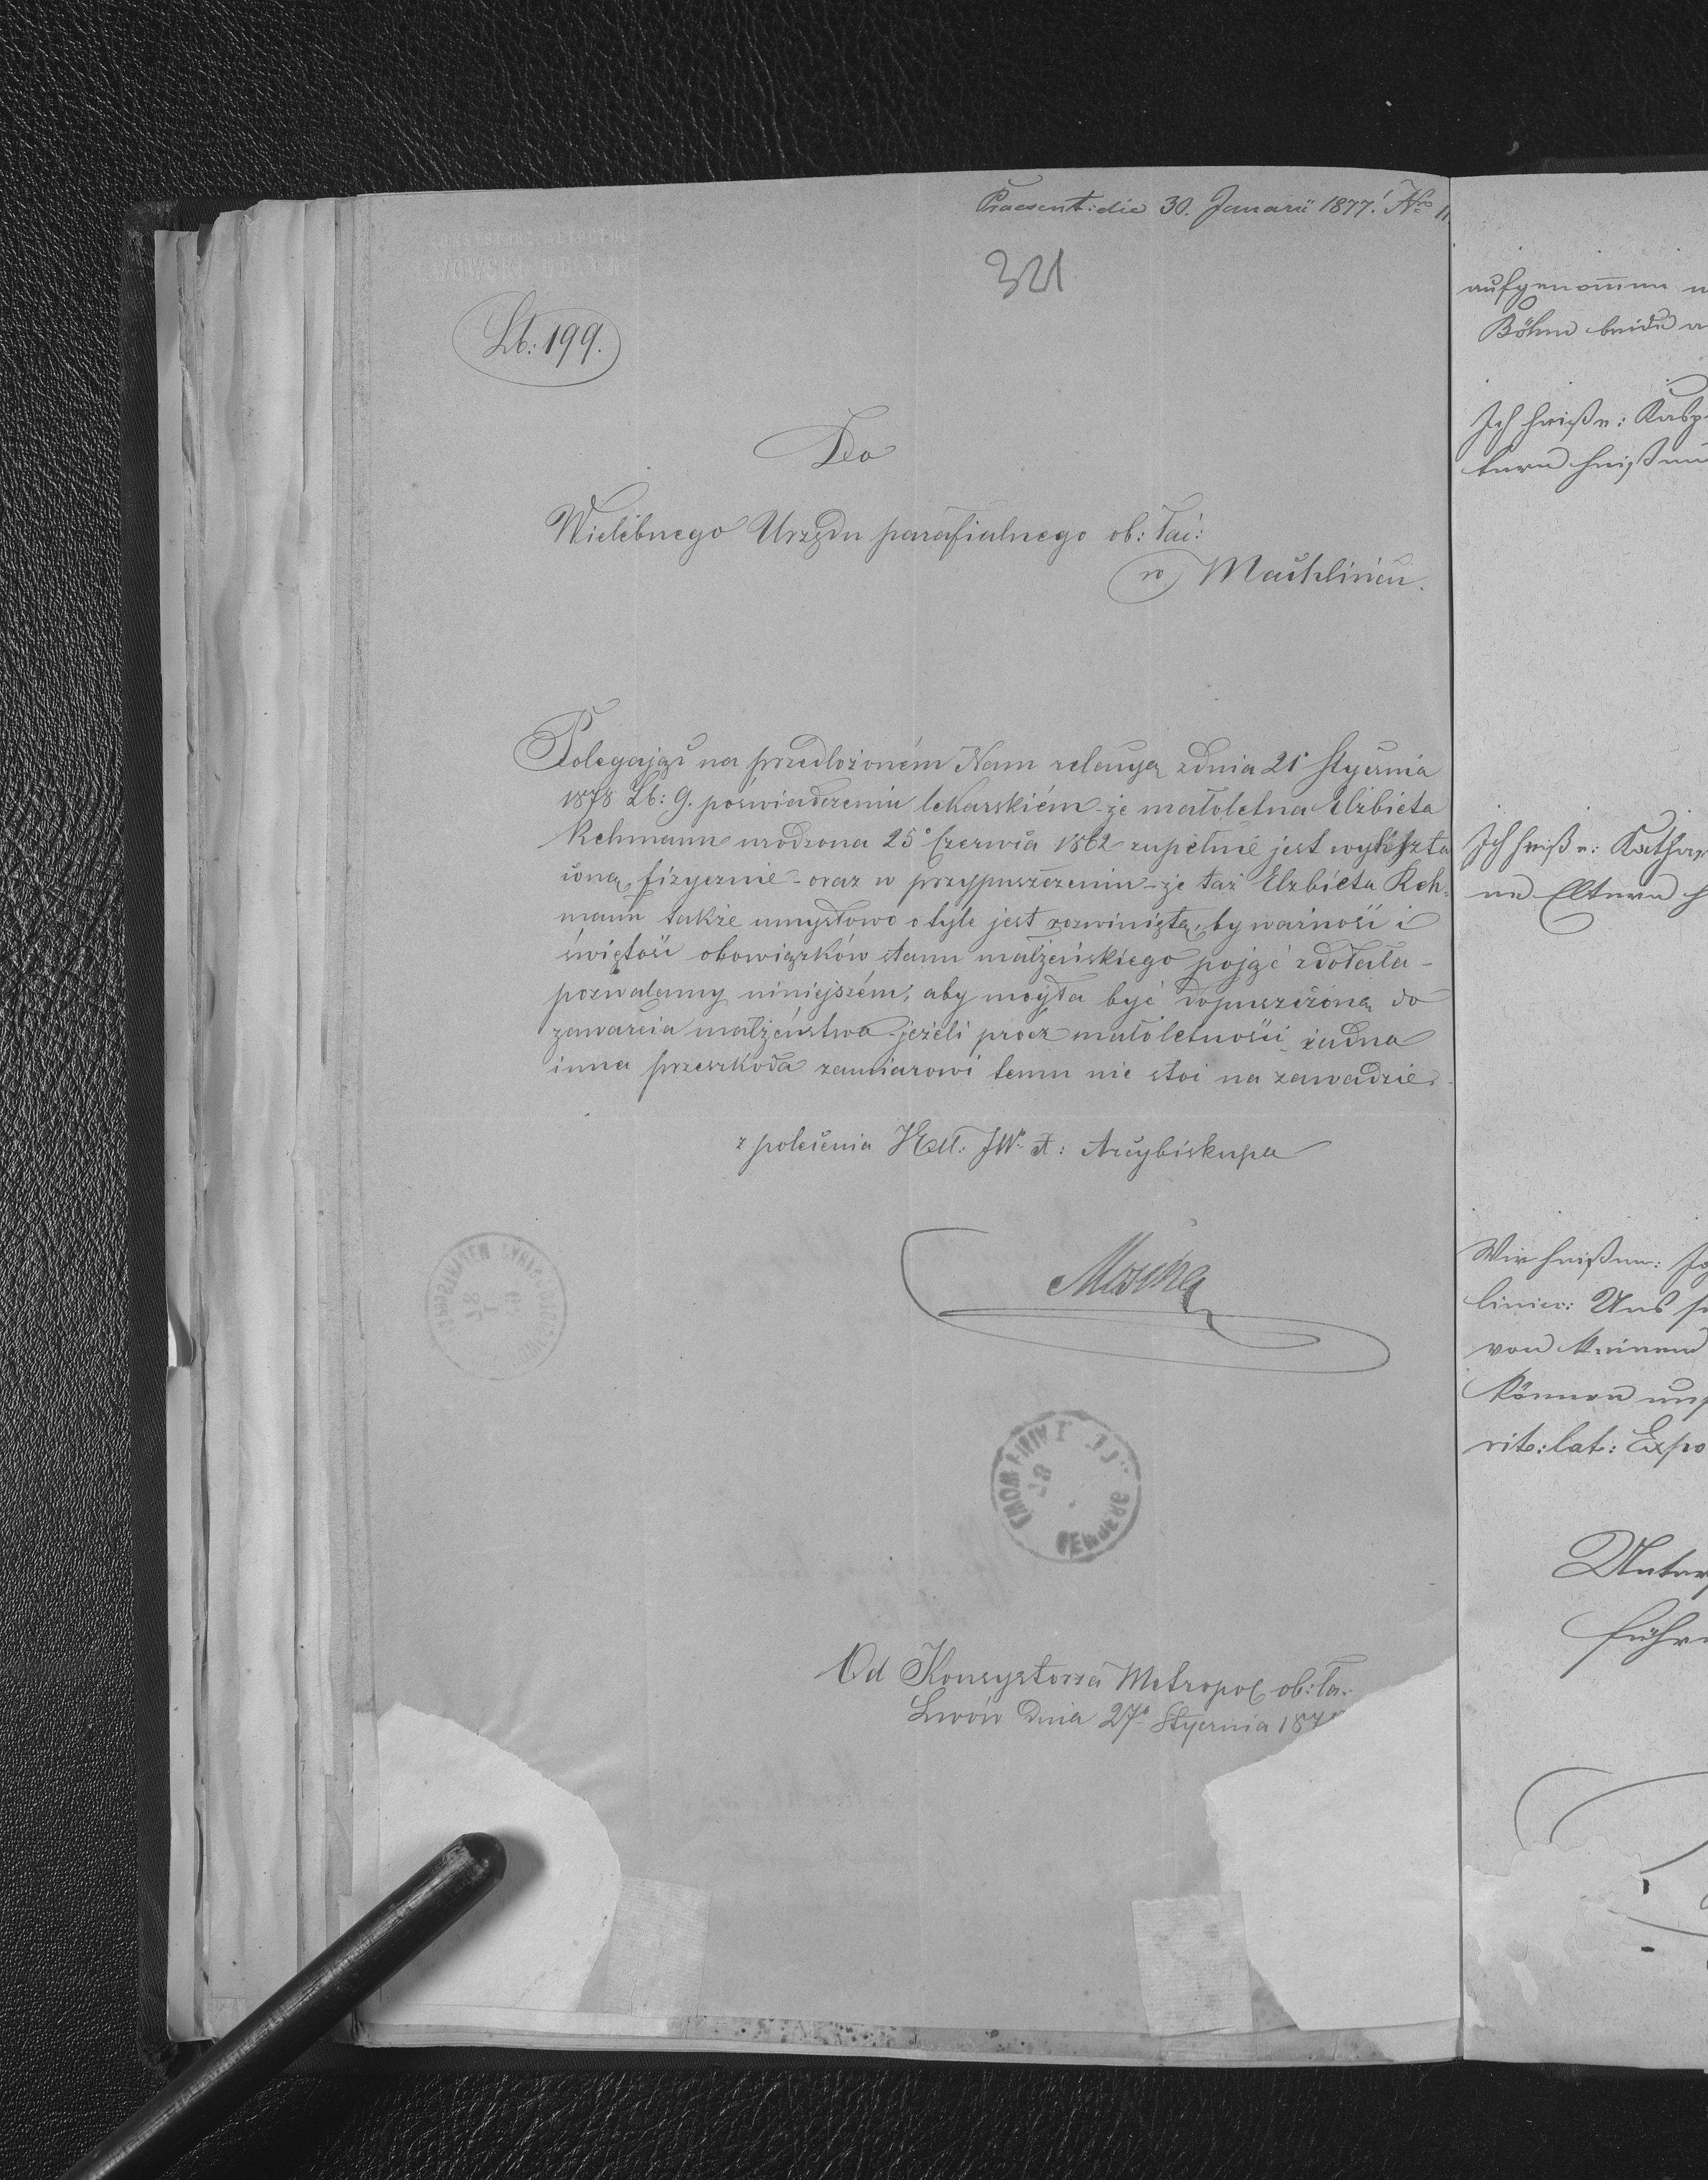 Praesent: die 30. Januarii 1877. Nro 11
321
Lb: 199.
Do
Wielebnego Urzędu parafialnego ob: łać:
w Machlińcu.
Polegając na przedłożoném Nam relacyą z dnia 21 Stycznia
1878 Lb: 9. poświadczeniu lekarskiém - że małoletna Elżbieta
Rehmann urodzona 25° Czerwca 1862 zupełnie jest wykształ
coną fizycznie - oraz w przypuszczeniu - że taż Elżbieta Reh-
mann także umysłowo o tyle jest rozwiniętą, by ważność i
świętość obowiązków stanu małżeńskiego pojąć zdołała -
pozwalamy niniejszém, aby mogła być dopuszczoną do
zawarcia małżeństwa - jeżeli prócz małoletności żadna
inna przeszkoda zamiarowi temu nie stoi na zawadzie.
z polecenia JExcl: JW. A: Arcybiskupa
LEMBERG
Od Konsystorza Metropol ob: ła:
Lwów dnia 27° Stycznia 187
aufgenommen
Böhm beide
Ich heiße: Kasp
tern heißen
Ich heiße: Kathar
ne Eltern h
Wir heißen: Jo
linie: Uns
von keinem
können
rit: lat: Expo
Unter
führ